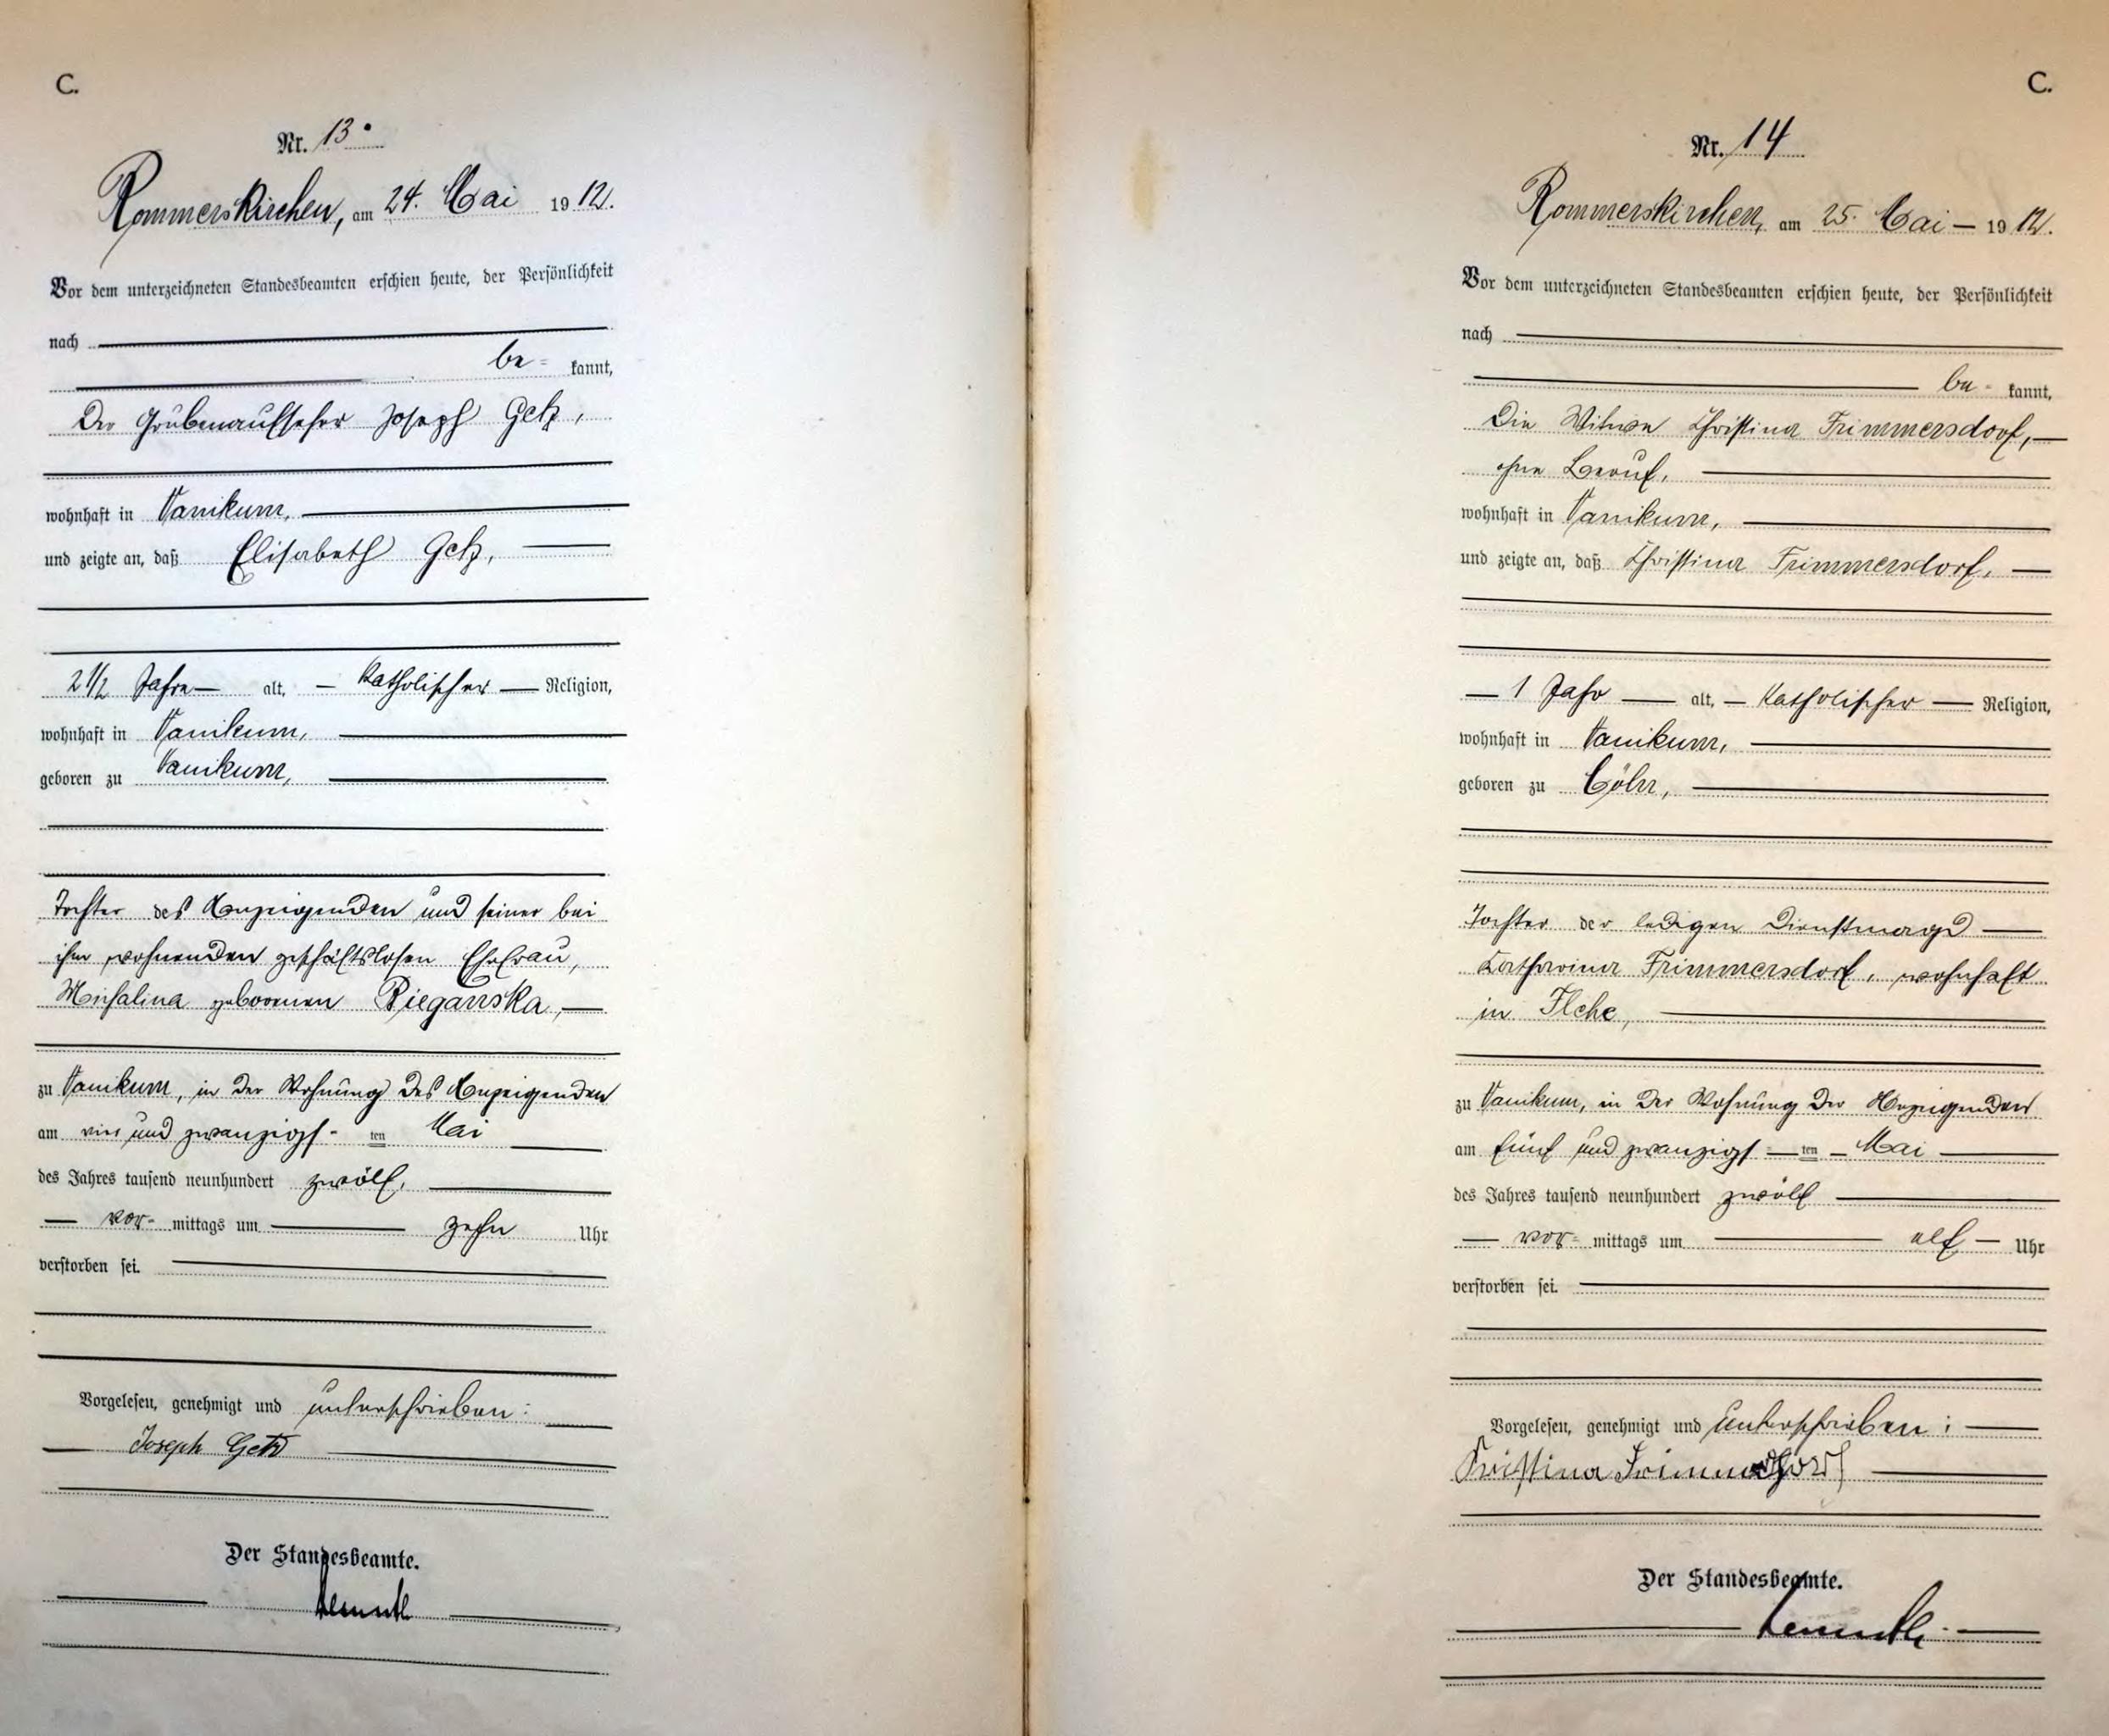 C.
Nr. 13.
Rommerskirchen, am 24. Mai 1912.
Vor dem unterzeichneten Standesbeamten erschien heute, der Persönlichkeit
nach
be- kannt,
Der Grubenaufseher Joseph Getz,
wohnhaft in Vanikum,
und zeigte an, daß Elisabeth Getz,
2 1/2 Jahre alt, katholischer Religion,
wohnhaft in Vanikum,
geboren zu Vanikum,
Tochter des Anzeigenden und seiner bei
ihm wohnenden geschäftslosen Ehefrau,
Michalina geborenen Bieganska,
zu Vanikum, in der Wohnung des Anzeigenden
am ein und zwanzigst-ten Mai
des Jahres tausend neunhundert zwölf,
vor-mittags um zehn Uhr
verstorben sei.
Vorgelesen, genehmigt und unterschrieben:
Joseph Getz
Der Standesbeamte.
C.
Nr. 14
Rommerskirchen, am 25. Mai 1912.
Vor dem unterzeichneten Standesbeamten erschien heute, der Persönlichkeit
nach
be- kannt,
Die Witwe Christina Frimmersdorf,
ohne Beruf,
wohnhaft in Vanikum,
und zeigte an, daß Christina Frimmersdorf,
1 Jahr alt, katholischer Religion,
wohnhaft in Vanikum,
geboren zu Cöln,
Tochter der ledigen Dienstmagd
Katharina Frimmersdorf, wohnhaft
in
zu Vanikum, in der Wohnung der Anzeigenden
am fünf und zwanzigst-ten Mai
des Jahres tausend neunhundert zwölf
vor-mittags um elf Uhr
verstorben sei.
Vorgelesen, genehmigt und unterschrieben:
Kristina Frimmersdorf
Der Standesbeamte.